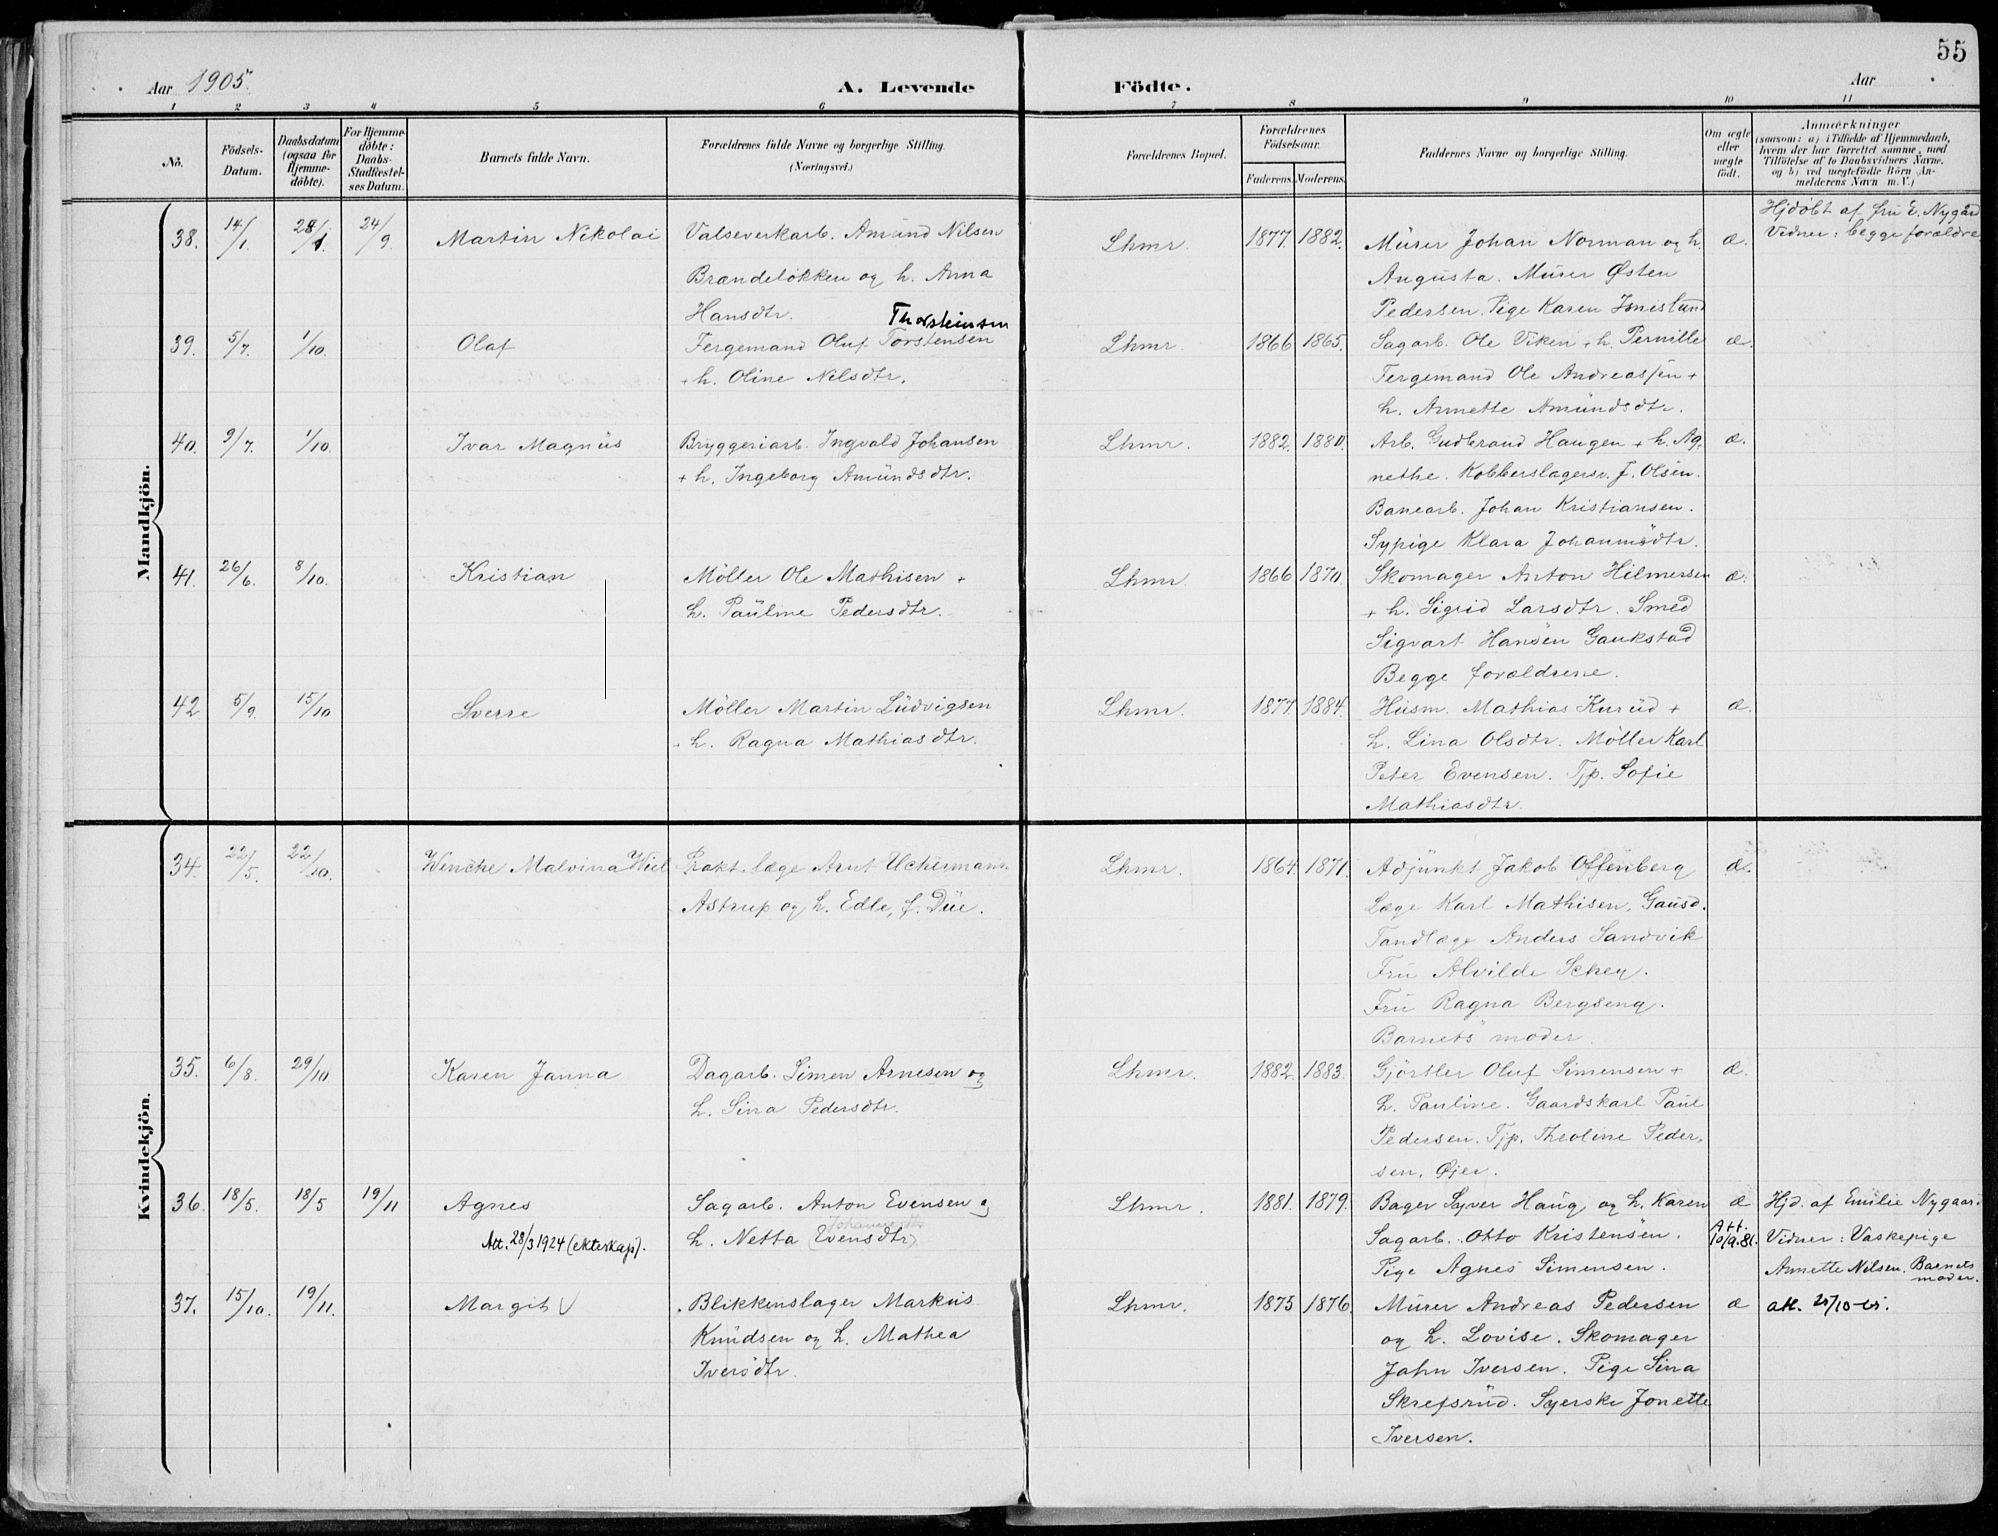 55
Aar 1905.
A. Levende Födte.
Aar
1 2 3 4 5 6 7 8 9 10 11
No.
Födsels-Datum.
Daabsdatum (ogsaa for Hjemme-döbte).
For Hjemme-döbte: Daabs-Stadfæstel-ses Datum.
Barnets fulde Navn.
Forældrenes fulde Navne og borgerlige Stilling.
(Næringsvei.)
Forældrenes Bopæl.
Forældrenes Födselsaar.
Faderens. Moderens.
Faddernes Navne og borgerlige Stilling.
Om ægte eller uægte födt.
Anmærkninger
(saasom: a) i Tilfælde af Hjemmedaab,
hvem der har forrettet samme, med
Tilföielse af to Daabsvidners Navne.
og b) ved uægtefödte Börn An-
melderens Navn m. V.)
Mandkjön.
38. 14/1. 24/9 Martin Nikolai Valseverkarb. Amund Nilsen Lhmr. 1877. 1882. Murer Johan Norman og h. æ. Hjdöbt af fru E. Nygård
Brændeløkken og h. Anna Augusta. Murer Østen Vidner: begge forældre
Hansdtr. Pedersen. Pige Karen
Thorsteinsen
39. 5/7. 1/10. Olaf Fergemand Oluf Torstensen Lhmr. 1866 1865. Sagarb. Ole Viken + h. Pernille æ.
+ h. Oline Nilsdtr. Fergemand Ole Andreassen +
h. Annette Amundsdtr.
40. 9/7. 1/10. Ivar Magnus Bryggeriarb. Ingvald Johansen Lhmr. 1882. 1880. Arb. Gudbrand Haugen + h. Ag- æ.
+ h. Ingeborg Amundsdtr. nethe. Kobberslagersv. J. Olsen.
Banearb. Johan Kristiansen.
Sypige Klara Johannsdtr.
41. 26/6. 8/10. Kristian Möller Ole Mathisen + Lhmr. 1866 1870. Skomager Anton Hilmersen æ.
h. Pauline Pedersdtr. + h. Sigrid Larsdtr. Smed
Sigvart Hansen Gaukstad
Begge forældrene.
42 5/9. 15/10 Sverre Möller Martin Ludvigsen Lhmr. 1877. 1884. Husm. Mathias Kurud + æ.
+ h. Ragna Mathiasdtr. h. Lina Olsdtr. Möller Karl
Peter Evensen. Tjp. Sofie
Mathiasdtr.
Kvindekjön.
34. 22/5. 22/10. Wencke Malvina Wiel Prakt. læge Arnt Uchermann Lhmr. 1864. 1871. Adjunkt Jakob Offenberg æ.
Astrup og h. Edle, f. Due. Læge Karl Mathisen, Gausd.
Tandlæge Anders Sandvik
Fru Alvilde Schey.
Fru Ragna Bergseng.
Barnets moder.
35. 6/8. 29/10 Karen Janna Dagarb. Simen Arnesen og Lhmr. 1882. 1883. Gjörtler Oluf Simensen + æ.
h. Sina Pedersdtr. h. Pauline. Gaardskarl Paul
Pedersen. Tjp. Theoline Peder-
sen, Øjer.
36. 18/5. 18/5 19/11 Agnes Sagarb. Anton Evensen og Lhmr. 1881. 1879. Bager Syver Haug og h. Karen æ Hjd. af Emilie Nygaard
Att. 28/3 1924 (ekteskap). h. Netta (Evensdtr) Sagarb. Otto Kristensen. Att. 10/9.81. Vidner: Vaskepige
Pige Agnes Simensen. Annette Nilsen. Barnets moder.
37. 15/10. 19/11. Margit V Blikkenslager Markus Lhmr. 1875 1876 Murer Andreas Pedersen æ att.
Knudsen og h. Mathea og h. Lovise. Skomager
Iversdtr. John Iversen. Pige Sina
Skrefsrud. Syerske Jonette
Iversen.